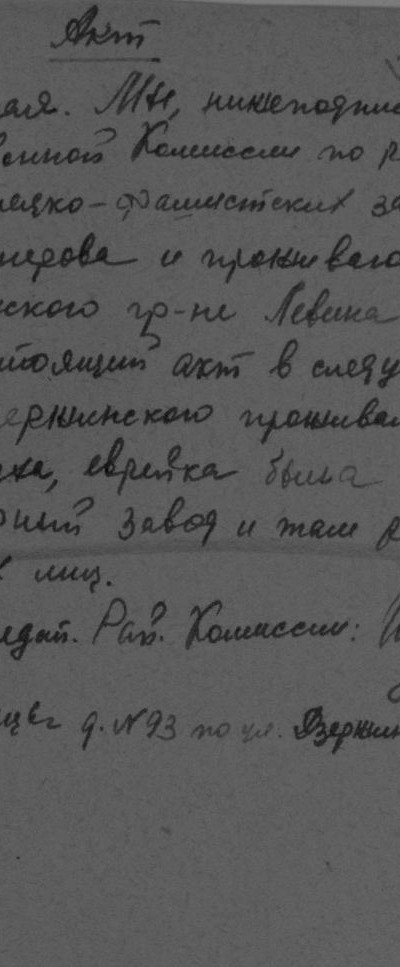 Акт
мая. Мы, нижеподпи
венной Комиссии по р
мецко-фашистских за
и прожива
ского гр-не Левина
стоящий акт в следу
зержинского прожива
еврейка была
рный завод и там р
х лиц.
седат. Рай. Комиссии:
д. N 93 по ул. Дзержин